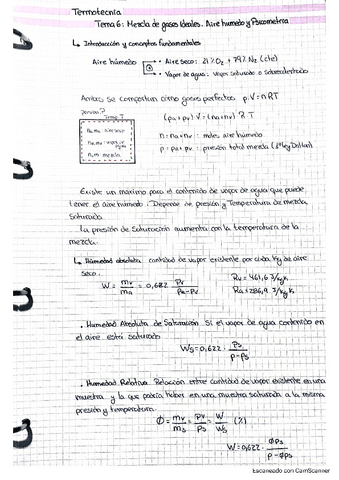 Termotecnia
Tema 6: Mezcla de gases ideales. Aire humedo y Psicrometria
↳ Introducción y conceptos fundamentales
Aire húmedo
Aire seco: 21% O2 + 79% N2 (cte)
Vapor de agua: vapor saturado o sobrecalentado
Ambos se comportan como gases perfectos p·V = nRT
(pa + pv) V = (na + nv) R T
n = na + nv : moles aire húmedo
p = pa + pv : presión total mezcla (Ley Dalton)
Existe un máximo para el contenido de vapor de agua que puede
tener el aire húmedo. Depende de presión y Temperatura de mezcla
saturada.
La presión de saturación aumenta con la temperatura de la
mezcla.
↳ Humedad absoluta: cantidad de vapor existente por cada kg de aire
seco.
W = mv/ma = 0,622 · pv/pa-pv
Rv = 461,6 J/kg K
Ra = 286,9 J/kg K
· Humedad Absoluta de Saturación. Si el vapor de agua contenido en
el aire está saturado
Ws = 0,622 · ps/p-ps
· Humedad Relativa. Relación entre cantidad de vapor existente en una
muestra y la que podría haber en una muestra saturada a la misma
presión y temperatura.
Φ = mv/ms = pv/ps = W/Ws (%)
W = 0,622 · Φps/p - Φps
Escaneado con CamScanner